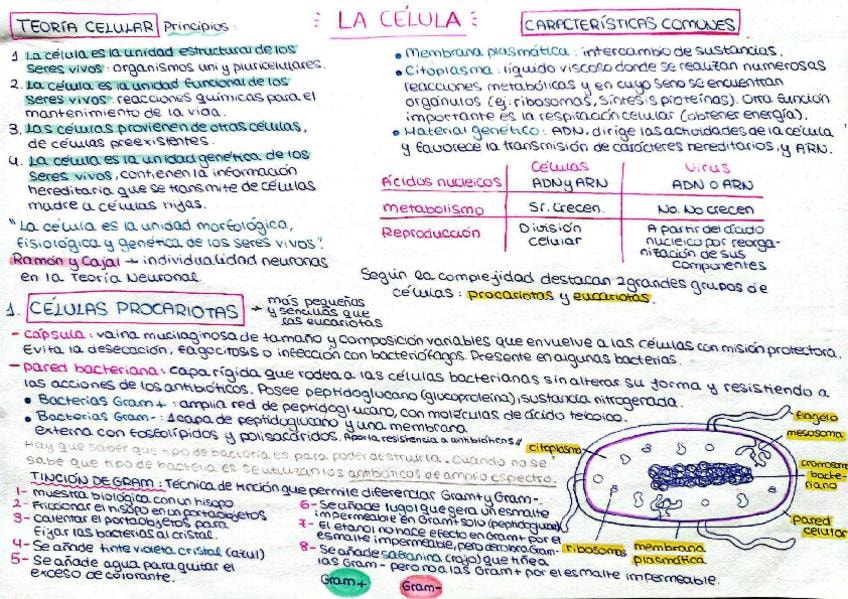 LA CÉLULA
TEORÍA CELULAR Principios:
1. La célula es la unidad estructural de los
seres vivos: organismos uni y pluricelulares.
2. La célula es la unidad funcional de los
seres vivos: reacciones químicas para el
mantenimiento de la vida.
3. Las células provienen de otras células,
de células preexistentes.
4. La célula es la unidad genética de los
seres vivos, contienen la información
hereditaria que se transmite de células
madre a células hijas.
"La célula es la unidad morfológica,
fisiológica y genética de los seres vivos".
Ramón y Cajal → individualidad neuronas
en la Teoría Neuronal
CARACTERÍSTICAS COMUNES
• Membrana plasmática: intercambio de sustancias.
• Citoplasma: líquido viscoso donde se realizan numerosas
reacciones metabólicas y en cuyo seno se encuentran
orgánulos (ej: ribosomas, síntesis proteínas). Otra función
importante es la respiración celular (obtener energía).
• Material genético: ADN, dirige las actividades de la célula
y favorece la transmisión de carácteres hereditarios, y ARN.
Células Virus
Ácidos nucleicos ADN y ARN ADN O ARN
metabolismo Sí. Crecen. No. No crecen
Reproducción División A partir del ácido
celular nucleico por reorga-
nización de sus
componentes
Según la complejidad destacan 2 grandes grupos de
células: procariotas y eucariotas.
1. CÉLULAS PROCARIOTAS → más pequeñas
y sencillas que
las eucariotas
- cápsula: vaina mucilaginosa de tamaño y composición variables que envuelve a las células con misión protectora.
Evita la desecación, fagocitosis o infección con bacteriófagos. Presente en algunas bacterias.
- pared bacteriana: capa rígida que rodea a las células bacterianas sin alterar su forma y resistiendo a
las acciones de los antibióticos. Posee peptidoglucano (glucoproteína), sustancia nitrogenada.
• Bacterias Gram+: amplia red de peptidoglucano, con moléculas de ácido teicoico.
• Bacterias Gram-: 1 capa de peptidoglucano y una membrana
externa con fosfolípidos y polisacáridos. Aporta resistencia a antibióticos//
Hay que saber que tipo de bacteria es para poder destruirla. Cuando no se
sabe que tipo de bacteria es se utilizan los antibióticos de amplio espectro.
TINCIÓN DE GRAM: Técnica de tinción que permite diferenciar Gram+ y Gram-.
1- muestra biológica con un hisopo
2- Friccionar el hisopo en un portaobjetos
3- Calentar el portaobjetos para
fijar las bacterias al cristal.
4- Se añade tinte violeta cristal (azul)
5- Se añade agua para quitar el
exceso de colorante.
6- Se añade lugol que gera un esmalte
impermeable en Gram+ solo (peptidoglucano)
7- El etanol no hace efecto en Gram+ por el
esmalte impermeable, pero decolora Gram-
8- Se añade safranina (rojo) que tiñe a
las Gram- pero no a las Gram+ por el esmalte impermeable.
Gram+ Gram-
flagelo
mesosoma
citoplasma
cromosoma
bacte-
riano
pared
celular
ribosomas
membrana
plasmática